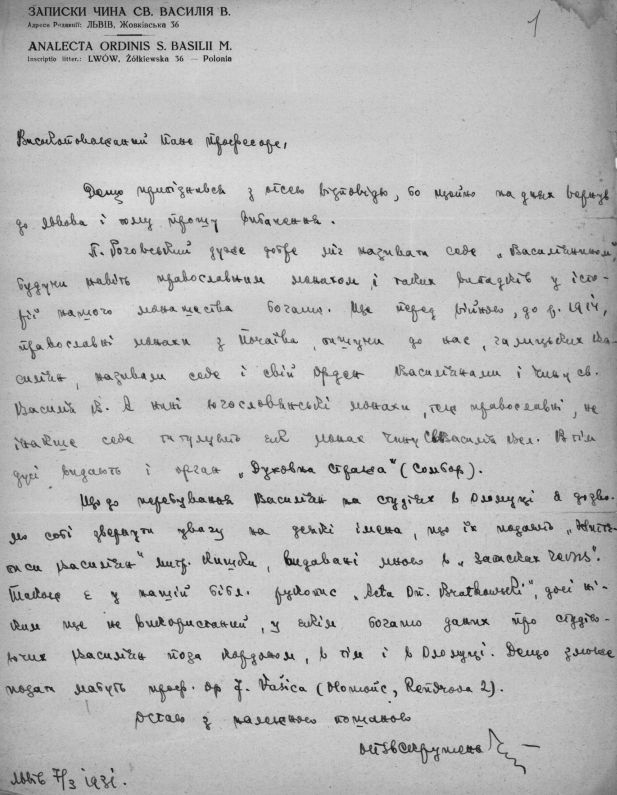 ЗАПИСКИ ЧИНА СВ. ВАСИЛІЯ В.
Адреса Редакції: ЛЬВІВ, Жовківська 36
ANALECTA ORDINIS S. BASILII M.
Inscriptio litter.: LWÓW, Żółkiewska 36 — Polonia
1
Високоповажаний Пане Професоре,
Дещо припізнився з отсею відповідю, бо щойно на днях вернув
до Львова і тому прошу вибачення.
П. Роговський дуже добре міг називати себе „Василіянином",
будучи навіть православним монахом і таких випадків у істо-
рії нашого монашества богато. Ще перед війною, до р. 1914,
православні монахи з Почаїва, пишучи до нас, галицьких Ва-
силіян, називали себе і свій Орден Василіянами і Чину св.
Василія В. А нині югословянські монахи, теж православні, не
інакше себе титулують як монах Чину св Василія Вел. В тім
дусі видають і орган „Духовна Стража" (Сомбор).
Що до перебування Василіян на студіях в Оломуці я дозво-
лю собі звернути увагу на деякі імена, що їх подають „Житє-
писи Василіян" митр. Кишки, видавані мною в „Записках ЧСВВ".
Також є у нашій бібл. рукопис „Acta Dn. Bratkowski", досі ні-
ким ще не використаний, у якім богато даних про студію-
ючих Василіян поза кордоном, в тім і в Оломуці. Дещо зможе
подати мабуть проф. др J. Vašica (Olomouc,
Остаю з належною пошаною
Львів 7/3 1931.